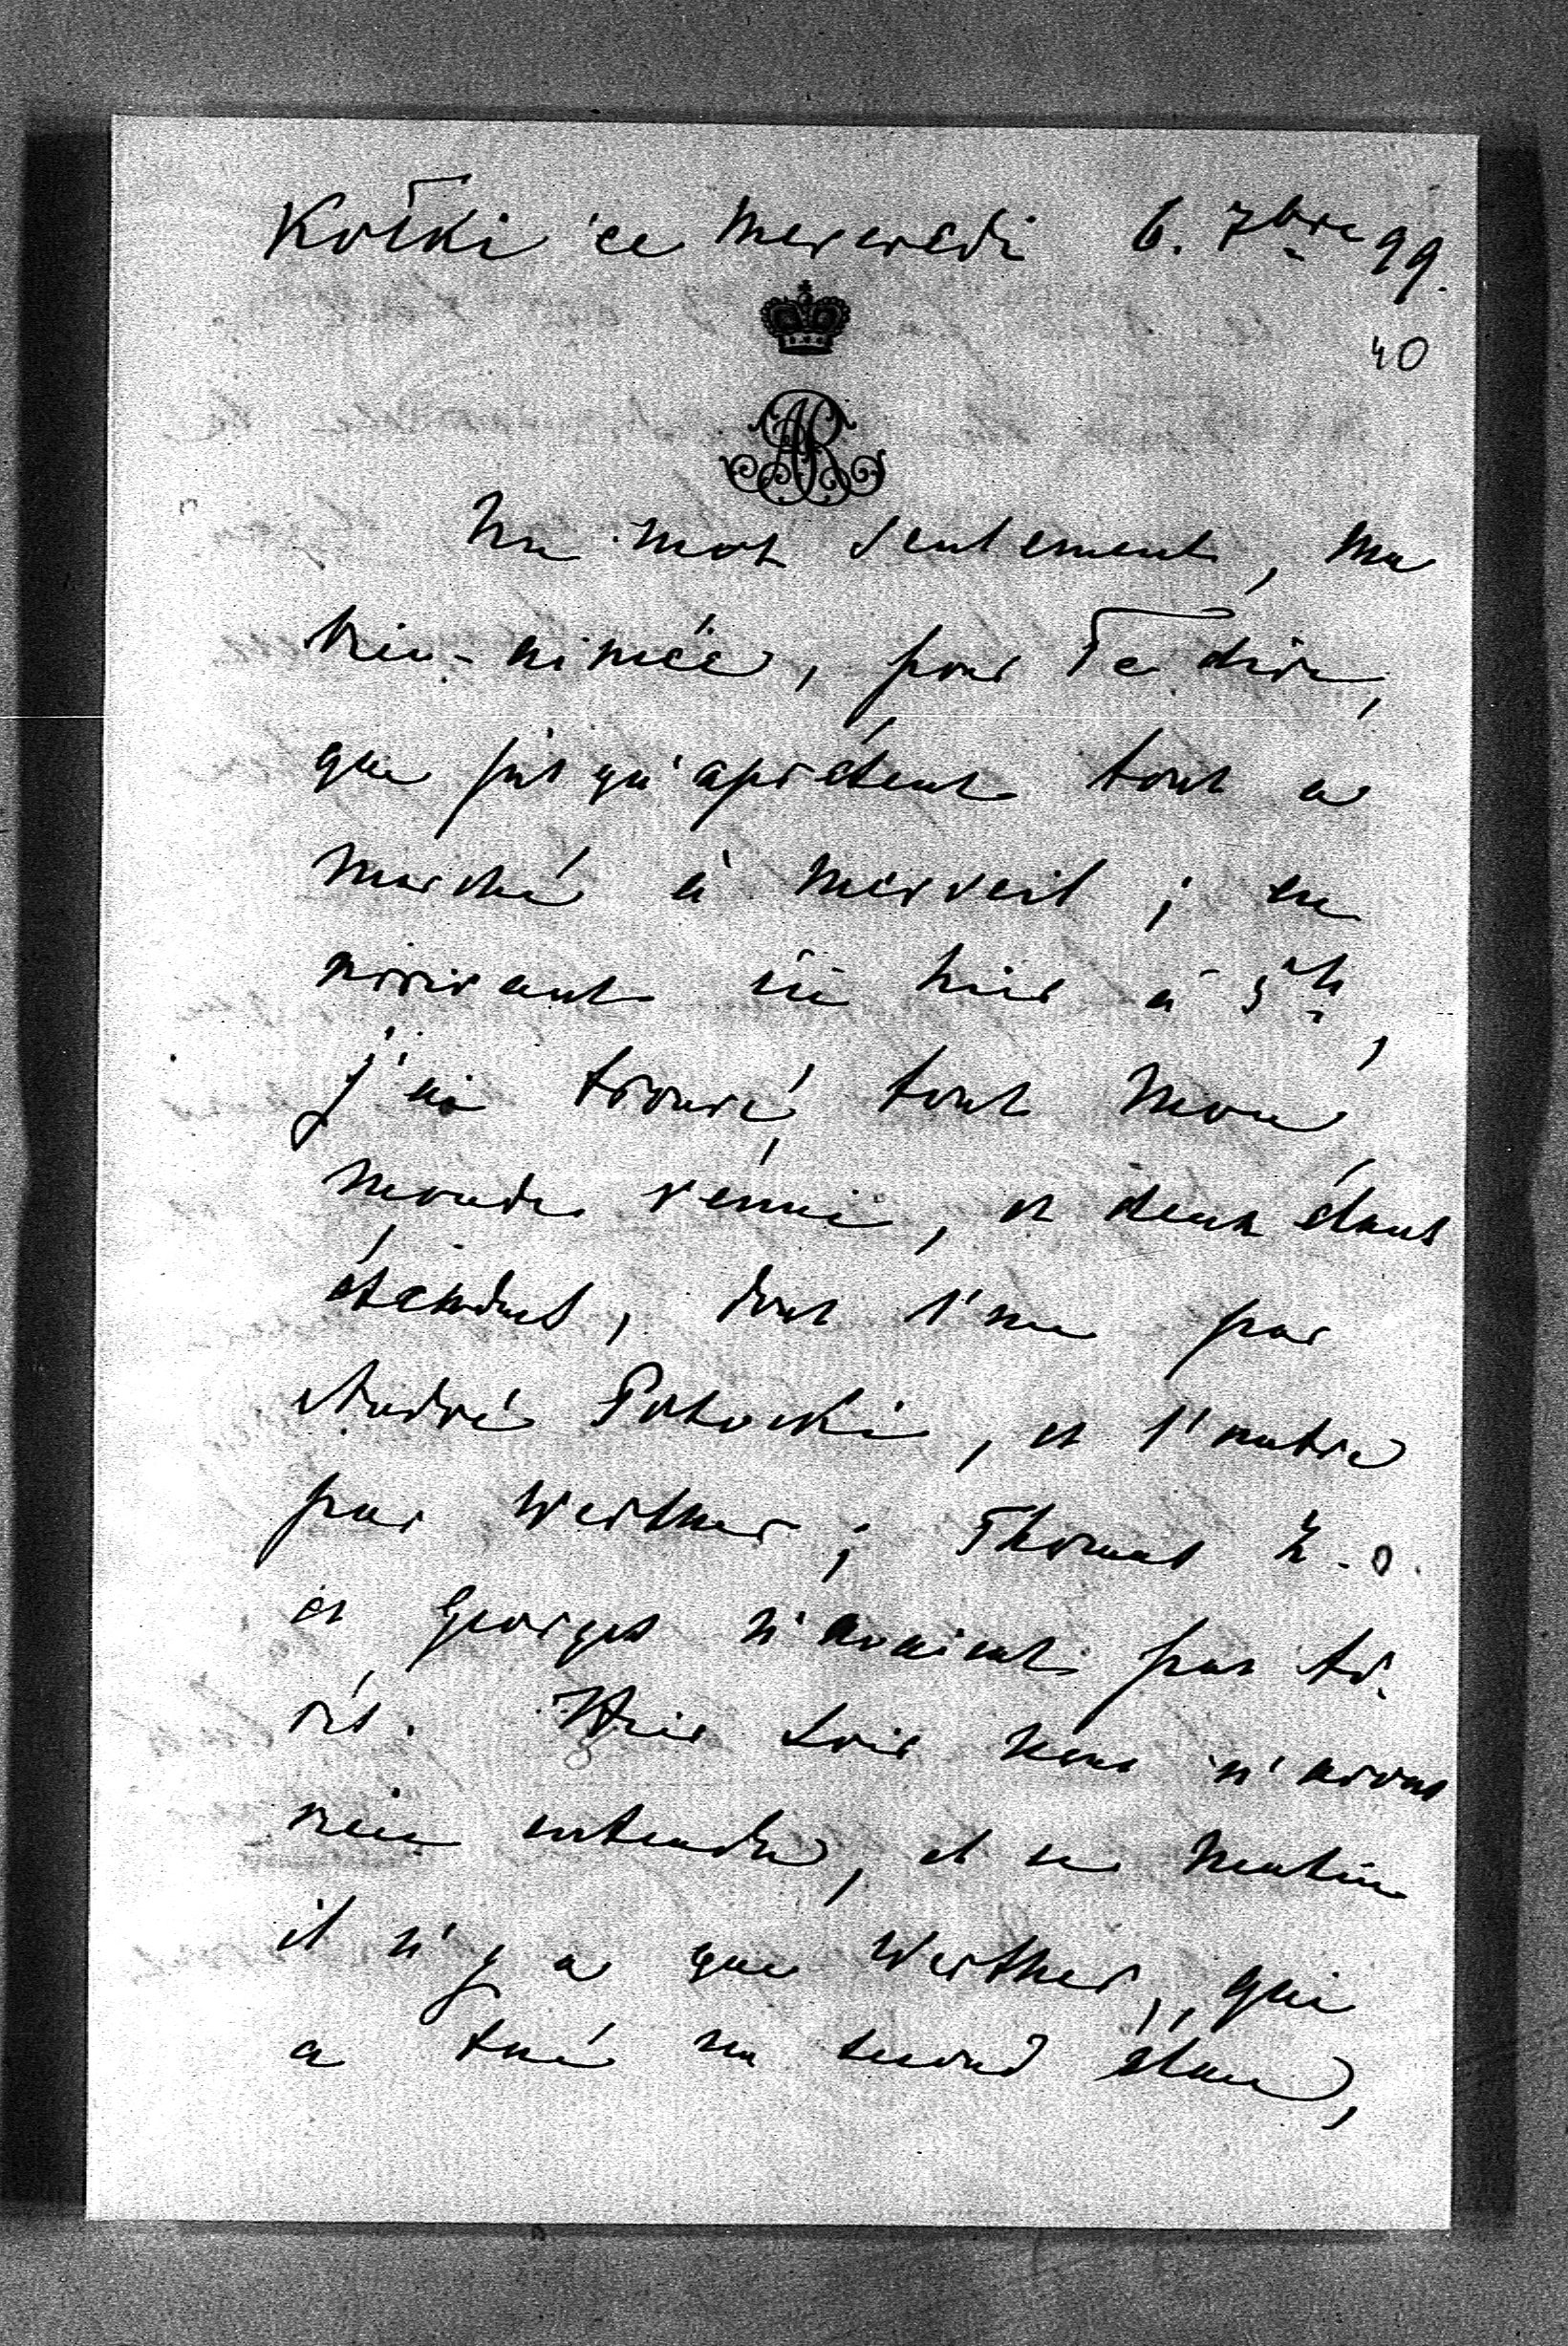 Kolki ce Mercredi 6. 7bre 99.
40
AR
Un mot seulement, ma
bien-aimée, pour Te dire,
que jusqu'aprésent tout a
marché à merveil; en
arrivant ici hier à 5h,
j'ai trouvé tout mon
monde réuni, et deux élans
étendus, dont l'un par
André Potocki, et l'autre
par Werther; Thomas Z-o.
et Georges n'avaient pas ti-
rés. Hier soir nous n'avons
rien entendu, et ce matin
il n'y a que Werther, qui
a tué un second élan,